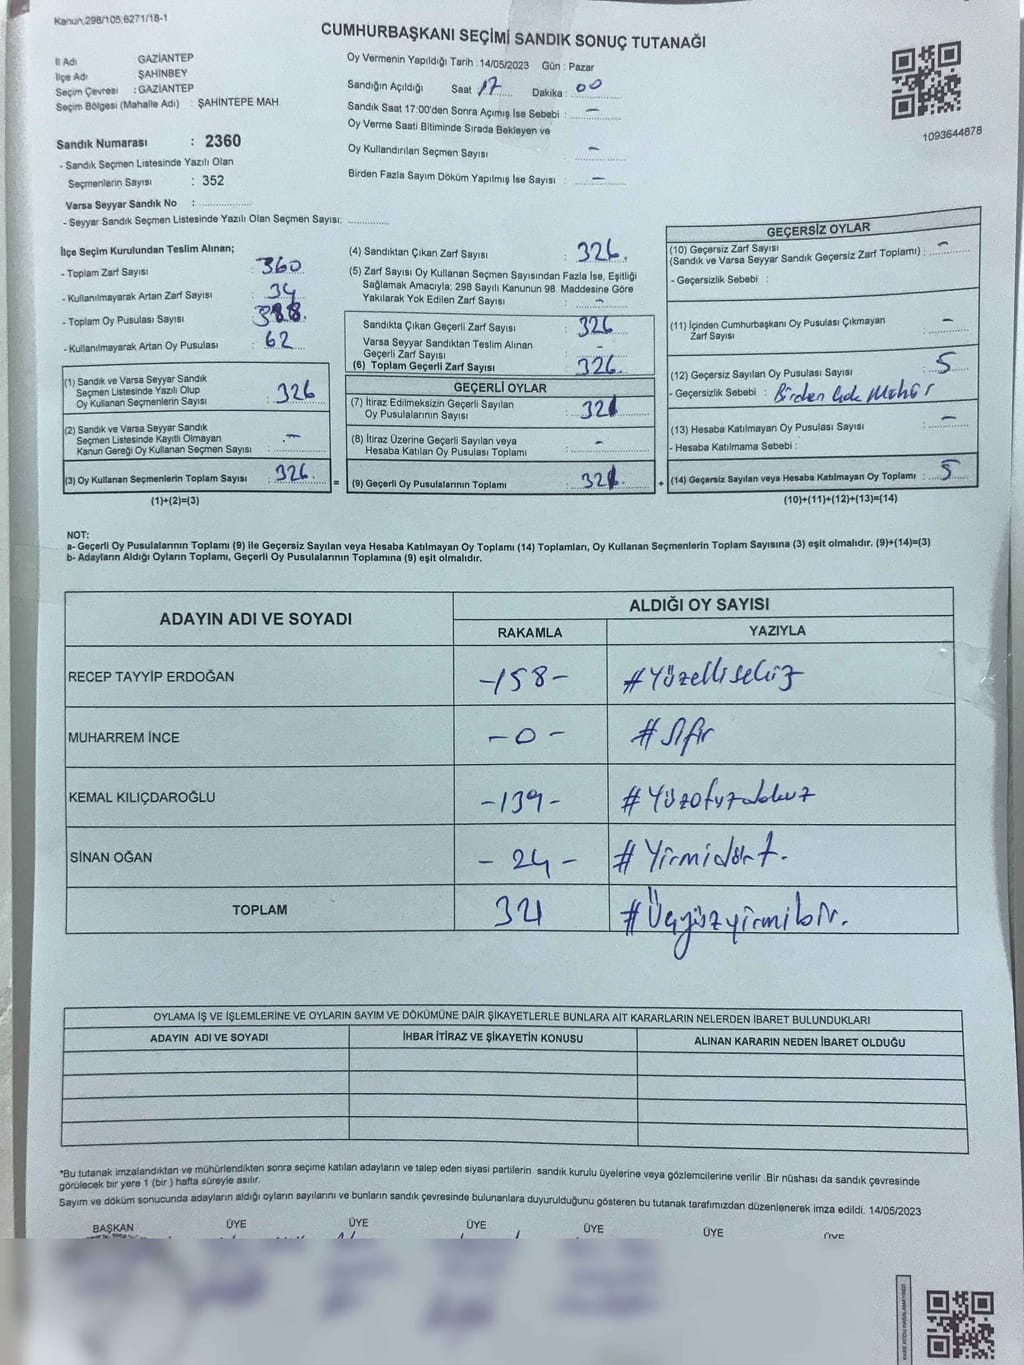 Kanun,298/105;6271/18-1
CUMHURBAŞKANI SEÇİMİ SANDIK SONUÇ TUTANAĞI
İl Adı GAZİANTEP
İlçe Adı ŞAHİNBEY
Seçim Çevresi : GAZİANTEP
Seçim Bölgesi (Mahalle Adı) : ŞAHİNTEPE MAH.
Sandık Numarası : 2360
- Sandık Seçmen Listesinde Yazılı Olan
Seçmenlerin Sayısı : 352
Varsa Seyyar Sandık No :
- Seyyar Sandık Seçmen Listesinde Yazılı Olan Seçmen Sayısı:
Oy Vermenin Yapıldığı Tarih : 14/05/2023 Gün : Pazar
Sandığın Açıldığı Saat 17 Dakika : 00
Sandık Saat 17:00'den Sonra Açımış İse Sebebi : -
Oy Verme Saati Bitiminde Sırada Bekleyen ve
Oy Kullandırılan Seçmen Sayısı : -
Birden Fazla Sayım Döküm Yapılmış İse Sayısı : -
1093644878
İlçe Seçim Kurulundan Teslim Alınan;
- Toplam Zarf Sayısı : 360
- Kullanılmayarak Artan Zarf Sayısı : 34
- Toplam Oy Pusulası Sayısı : 388.
- Kullanılmayarak Artan Oy Pusulası : 62
(1) Sandık ve Varsa Seyyar Sandık
Seçmen Listesinde Yazılı Olup
Oy Kullanan Seçmenlerin Sayısı : 326
(2) Sandık ve Varsa Seyyar Sandık
Seçmen Listesinde Kayıtlı Olmayan
Kanun Gereği Oy Kullanan Seçmen Sayısı : -
(3) Oy Kullanan Seçmenlerin Toplam Sayısı : 326. =
(1)+(2)=(3)
(4) Sandıktan Çıkan Zarf Sayısı : 326.
(5) Zarf Sayısı Oy Kullanan Seçmen Sayısından Fazla İse, Eşitliği
Sağlamak Amacıyla; 298 Sayılı Kanunun 98. Maddesine Göre
Yakılarak Yok Edilen Zarf Sayısı : -
Sandıkta Çıkan Geçerli Zarf Sayısı : 326
Varsa Seyyar Sandıktan Teslim Alınan
Geçerli Zarf Sayısı : -
(6) Toplam Geçerli Zarf Sayısı : 326.
GEÇERLİ OYLAR
(7) İtiraz Edilmeksizin Geçerli Sayılan
Oy Pusulalarının Sayısı : 321
(8) İtiraz Üzerine Geçerli Sayılan veya
Hesaba Katılan Oy Pusulası Toplamı : -
(9) Geçerli Oy Pusulalarının Toplamı : 321. +
GEÇERSİZ OYLAR
(10) Geçersiz Zarf Sayısı
(Sandık ve Varsa Seyyar Sandık Geçersiz Zarf Toplamı) : -
- Geçersizlik Sebebi :
(11) İçinden Cumhurbaşkanı Oy Pusulası Çıkmayan
Zarf Sayısı : -
(12) Geçersiz Sayılan Oy Pusulası Sayısı : 5
- Geçersizlik Sebebi : Birden Çok Mühür
(13) Hesaba Katılmayan Oy Pusulası Sayısı : -
- Hesaba Katılmama Sebebi :
(14) Geçersiz Sayılan veya Hesaba Katılmayan Oy Toplamı : 5
(10)+(11)+(12)+(13)=(14)
NOT:
a- Geçerli Oy Pusulalarının Toplamı (9) ile Geçersiz Sayılan veya Hesaba Katılmayan Oy Toplamı (14) Toplamları, Oy Kullanan Seçmenlerin Toplam Sayısına (3) eşit olmalıdır. (9)+(14)=(3)
b- Adayların Aldığı Oyların Toplamı, Geçerli Oy Pusulalarının Toplamına (9) eşit olmalıdır.
ADAYIN ADI VE SOYADI ALDIĞI OY SAYISI
RAKAMLA YAZIYLA
RECEP TAYYİP ERDOĞAN -158- #Yüzellisekiz
MUHARREM İNCE -0- #Sıfır
KEMAL KILIÇDAROĞLU -139- #Yüzotuzdokuz
SİNAN OĞAN -24- #Yirmidört.
TOPLAM 321 #Üçyüzyirmibir.
OYLAMA İŞ VE İŞLEMLERİNE VE OYLARIN SAYIM VE DÖKÜMÜNE DAİR ŞİKAYETLERLE BUNLARA AİT KARARLARIN NELERDEN İBARET BULUNDUKLARI
ADAYIN ADI VE SOYADI İHBAR İTİRAZ VE ŞİKAYETİN KONUSU ALINAN KARARIN NEDEN İBARET OLDUĞU
*Bu tutanak imzalandıktan ve mühürlendikten sonra seçime katılan adayların ve talep eden siyasi partilerin sandık kurulu üyelerine veya gözlemcilerine verilir .Bir nüshası da sandık çevresinde
görülecek bir yere 1 (bir ) hafta süreyle asılır.
Sayım ve döküm sonucunda adayların aldığı oyların sayılarını ve bunların sandık çevresinde bulunanlara duyurulduğunu gösteren bu tutanak tarafımızdan düzenlenerek imza edildi. 14/05/2023
BAŞKAN ÜYE ÜYE ÜYE ÜYE ÜYE ÜYE